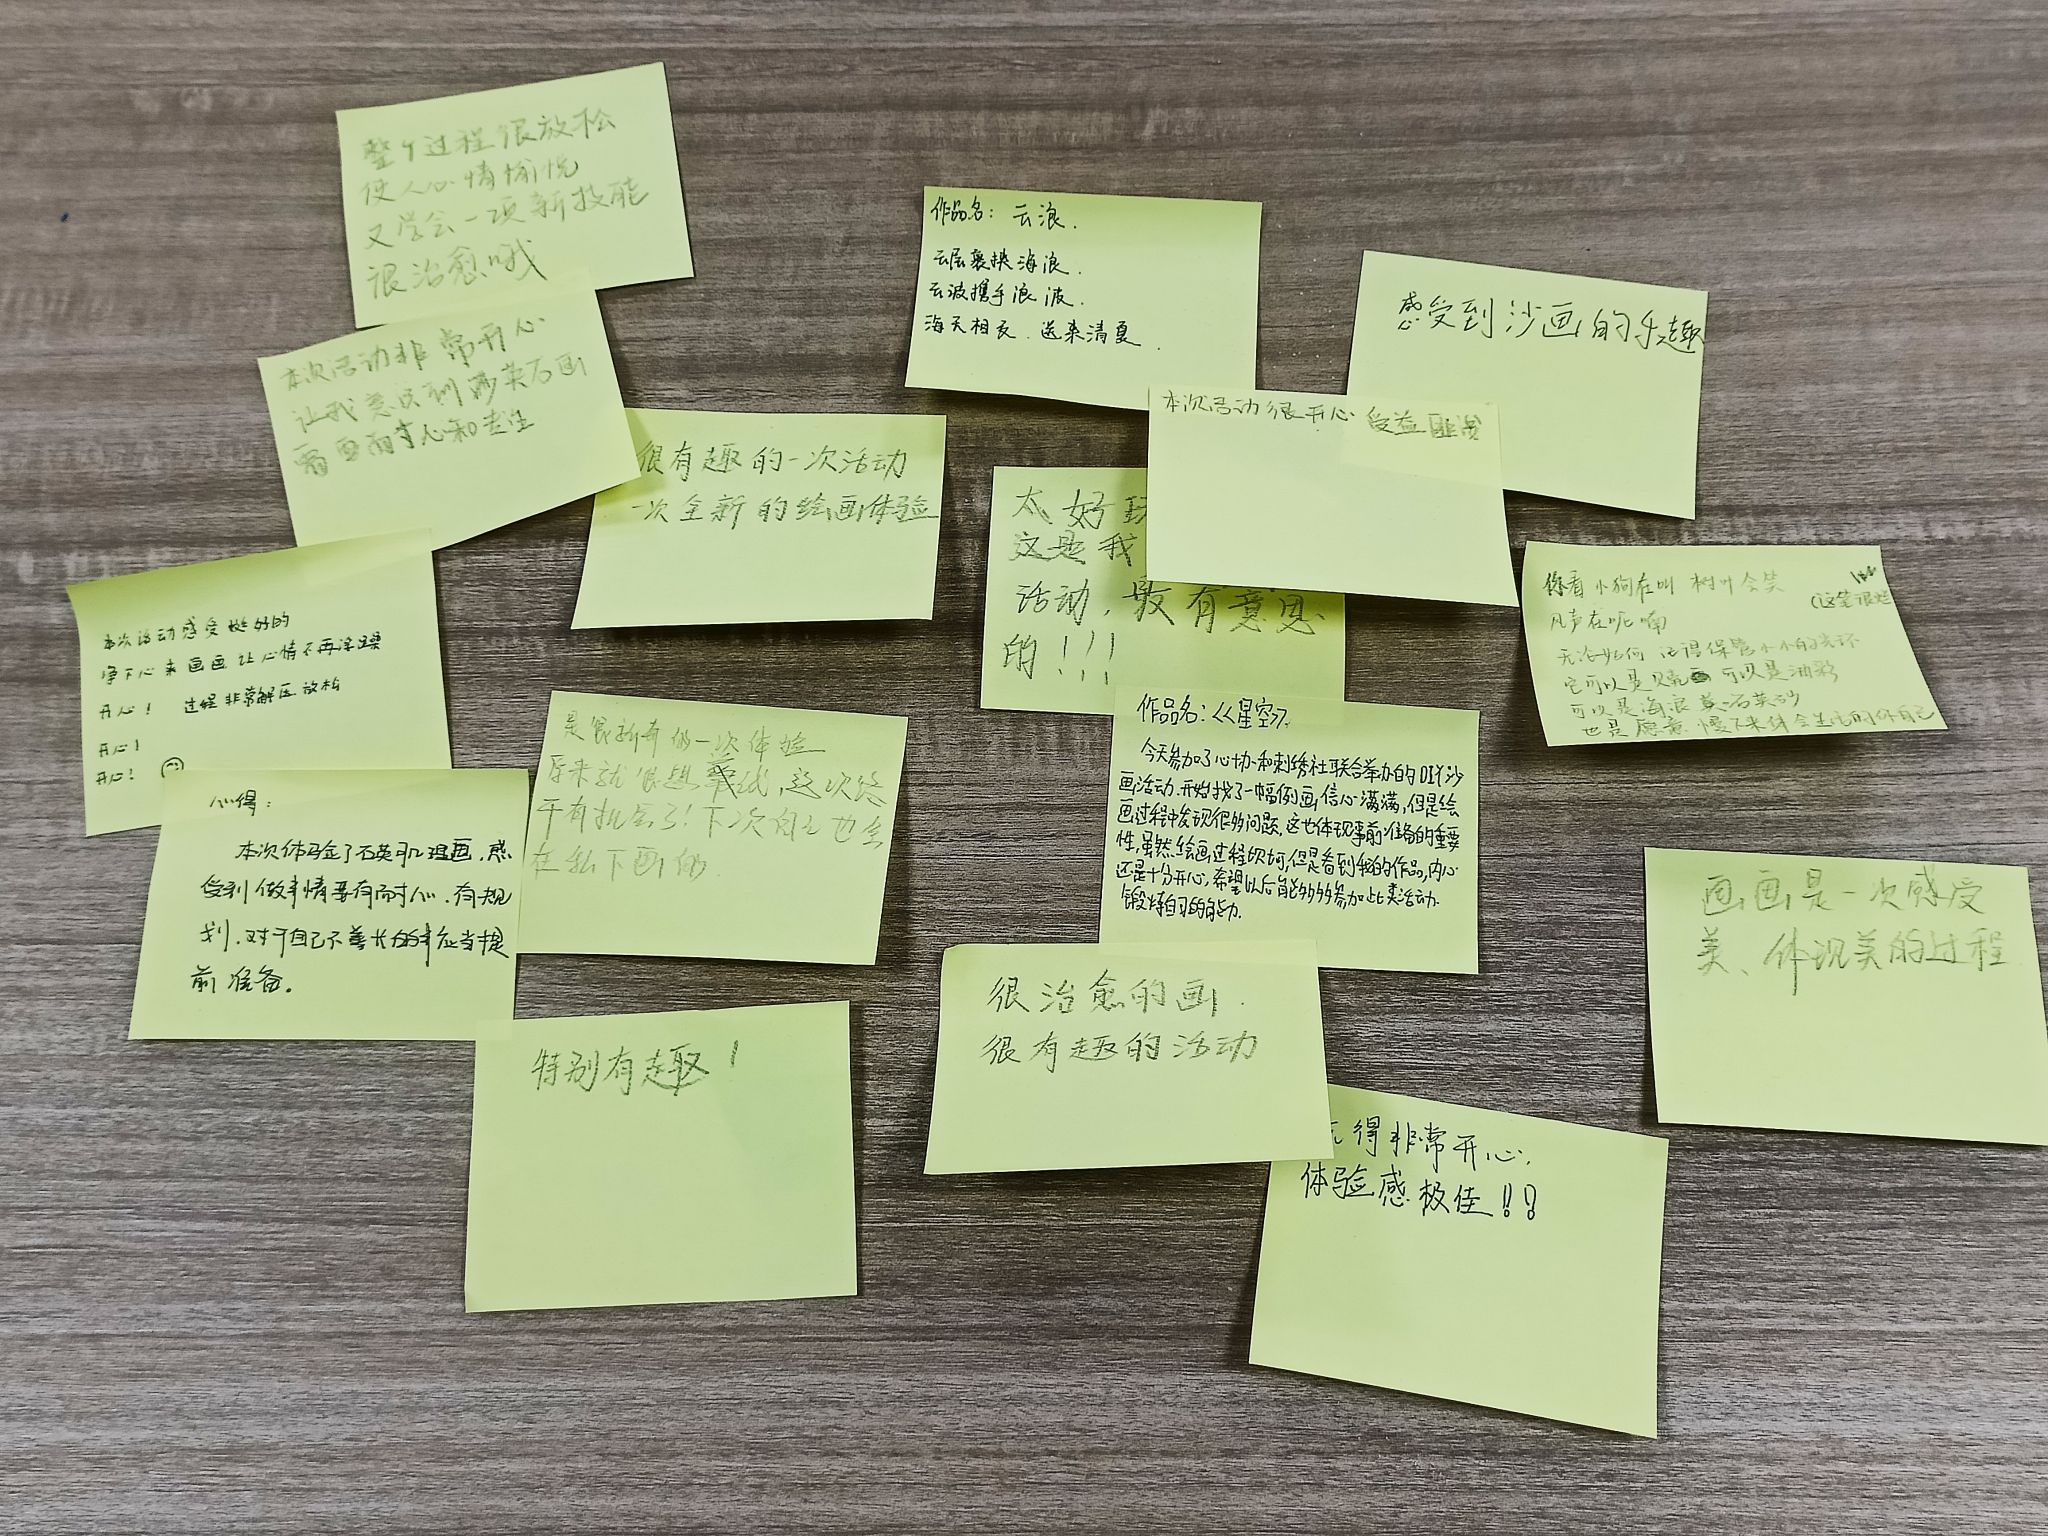 整个过程很放松
使人心情愉悦
又学会一项新技能
很治愈哦
作品名：云浪.
云层裹挟海浪.
云波携手浪波.
海天相衣.送来清夏.
感受到沙画的乐趣
本次活动非常开心
让我意识到 英石画
需 画 有 心和
很有趣的一次活动
一次全新的绘画体验
本次活动很开心 受益匪浅
太好玩
这是我
活动，最有意思
的!!!
你看小狗在叫 树叶会笑
(这笔很烂
风声在呢喃
无论如何 记得保管小小的光环
它可以是贝壳 可以是油彩
可以是海浪 是石英砂
也是愿意 慢下来体会生活的你自己
本次活动感受挺好的
净下心来画画让心情不再浮躁
开心！ 过程非常解压放松
开心！
开心！
是很新奇的一次体验
原来就很想 试，这次终
于有机会了！下次自己也会
在私下画的.
作品名：<<星空>>.
今天参加了心协和刺绣社联合举办的DIY沙
画活动.开始找了一幅例画,信心满满,但是绘
画过程中发现很多问题,这也体现事前准备的重要
性,虽然绘画过程坎坷,但是看到我的作品,内心
还是十分开心,希望以后能够多多参加此类活动
锻炼自己的能力.
心得：
本次体验了石英 画,感
受到做事情要有耐心.有规
划.对于自己不善长的事应当提
前准备。
画画是一次感受
美、体现美的过程
很治愈的画.
很有趣的活动
特别有趣！
玩得非常开心,
体验感极佳！！！